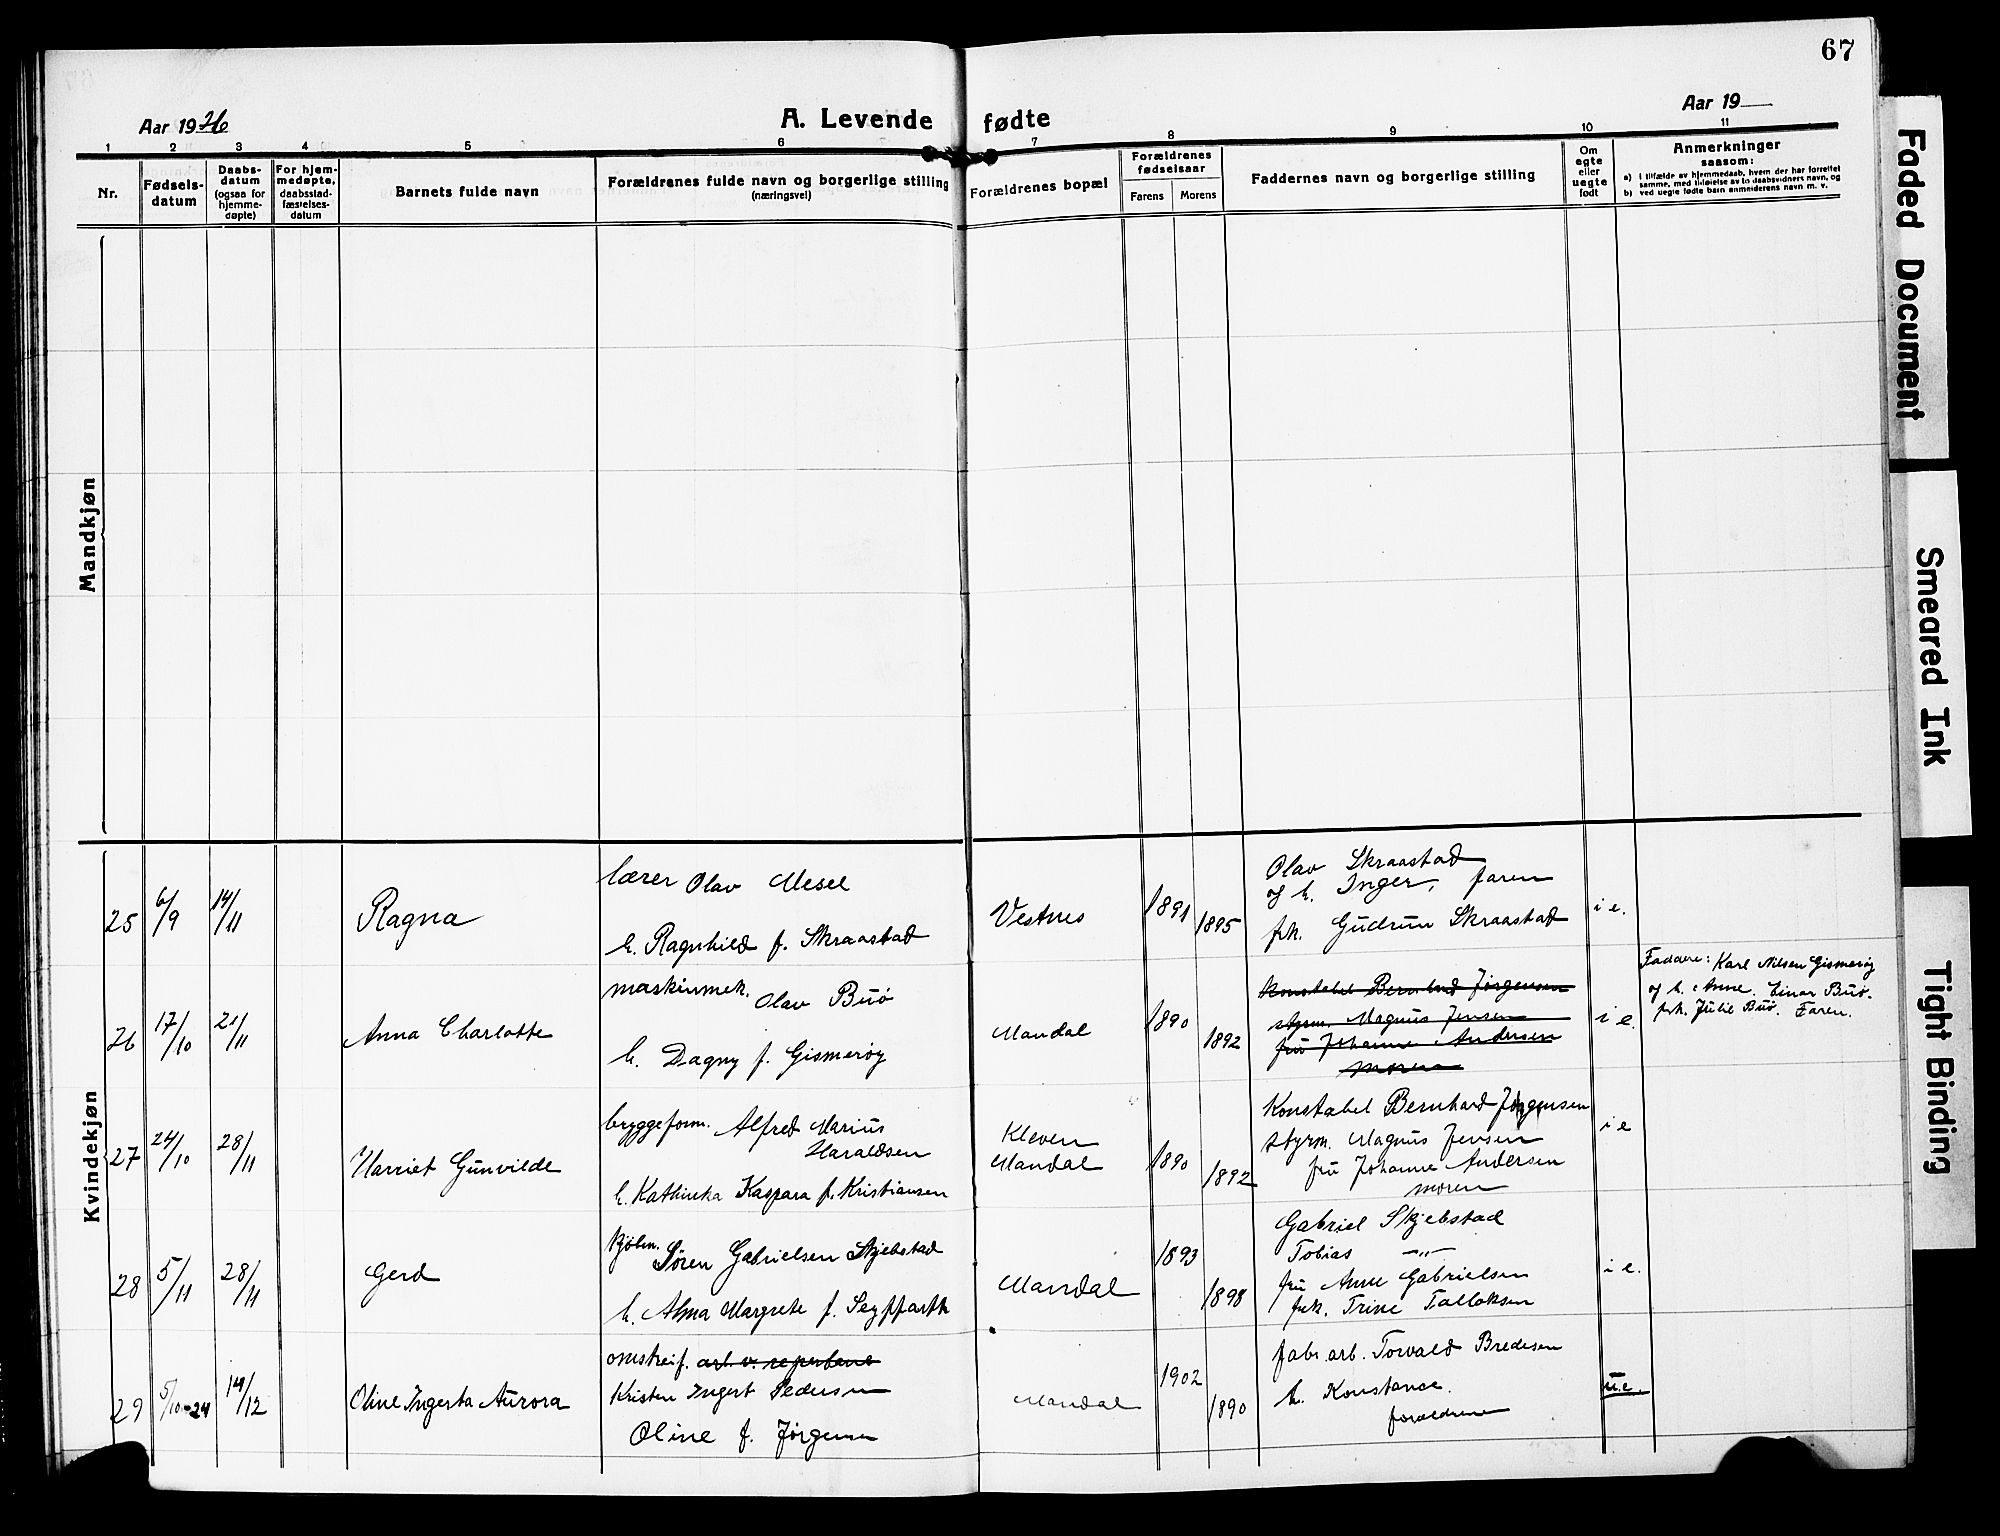 67
Aar 1926
A. Levende fødte
Aar 19
1 2 3 4 5 6 7 8 9 10 11
Nr.
Fødsels-
datum
Daabs-
datum
(ogsaa for
hjemme-
døpte)
For hjem-
medøpte,
daabsstad-
fæstelses-
datum
Barnets fulde navn
Forældrenes fulde navn og borgerlige stilling
(næringsvei)
Forældrenes bopæl
Forældrenes
fødselsaar
Farens Morens
Faddernes navn og borgerlige stilling
Om
egte
eller
uegte
født
Anmerkninger
saasom:
a) i tilfælde av hjemmedaab, hvem der har forrettet
samme, med tilføielse av to daabsvidners navn, og
b) ved uegte fødte barn anmelderens navn m. v.
Mandkjøn
Kvindekjøn
25 6/9 14/11 Ragna
lærer Olav Mesel
h. Ragnhild f. Skraastad
Vestnes 1891 1895
Olav Skraastad
og h. Inger, faren
frk. Gudrun Skraastad
i e.
26 17/10 21/11 Anna Charlotte
maskinmek. Olav Buø
h. Dagny f. Gismerøy
Mandal 1890 1892
Konstabel Bernhard Jørgensen
styrm. Magnus Jensen
fru Johanne Andersen
moren
i e.
Faddere: Karl Nilsen Gismerøy
og h. Anne. Einar Buø.
frk. Julie Buø. Faren.
27 24/10 28/11 Harriet Gunvilde
bryggeform. Alfred Marius
Haraldsen
h. Kathinka Kaspara f. Kristiansen
Kleven
Mandal 1890 1892
Konstabel Bernhard Jørgensen
styrm. Magnus Jensen
fru Johanne Andersen
moren
i e
28 5/11 28/11 Gerd
kjøbm. Søren Gabrielsen Skjebstad
h. Alma Margrete f. Seyffarth
Mandal 1893 1898
Gabriel Skjebstad
Tobias —"—
fru Anne Gabrielsen
frk. Trine Tallaksen
i e.
29 5/10-24 14/12 Oline Ingerta Aurora
omstreif. arb. v. reperbane
Kristen Ingert Pedersen
Oline f. Jørgensen
Mandal 1902 1890
fabr. arb. Torvald Bredesen
h. Konstance.
forældrene
u.e.
Faded Document
Smeared Ink
Tight Binding